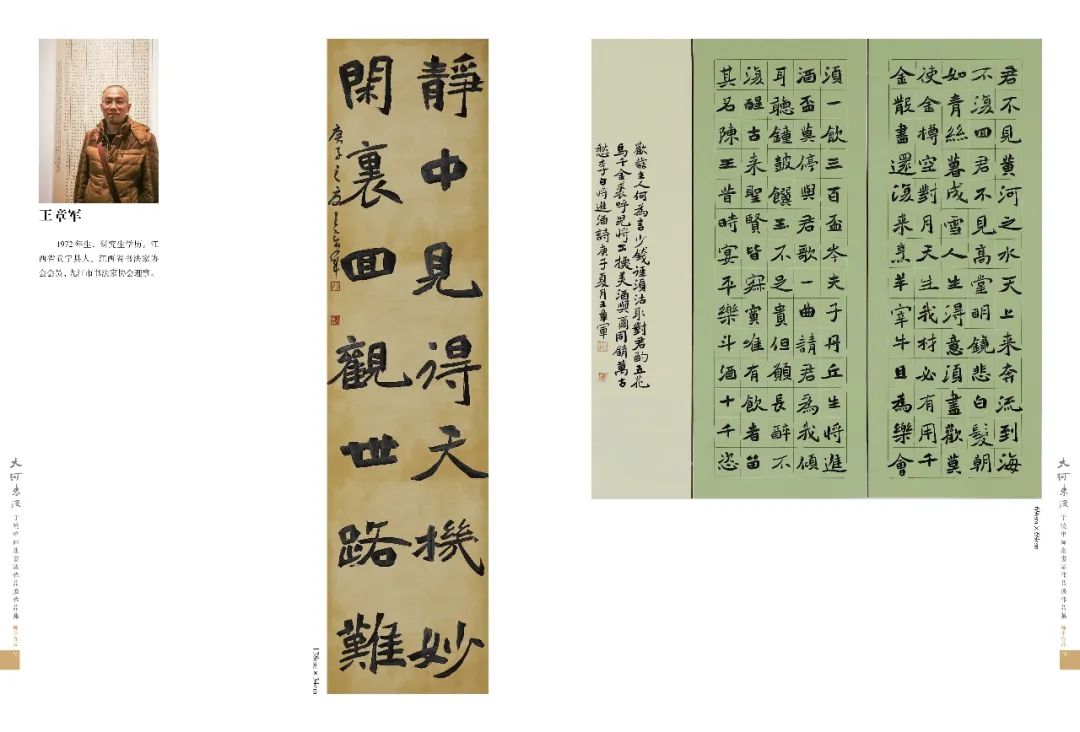 王章军
1972年生，研究生学历。江
西省武宁县人，江西省书法家协
会会员，九江市书法家协会理事。
靜中見得天機妙
閑裏回觀世路難
庚子之夏
138cm×34cm
君不見黃河之水天上来奔流到海
不復回君不見高堂明鏡悲白髮朝
如青絲暮成雪人生得意須盡歡莫
使金樽空對月天生我材必有用千
金散盡還復来烹羊宰牛且為樂會
須一飲三百盃岑夫子丹丘生將進
酒盃莫停與君歌一曲請君為我傾
耳聽鐘鼓饌玉不足貴但願長醉不
復醒古来聖賢皆寂寞唯有飲者留
其名陳王昔時宴平樂斗酒十千恣
歡謔主人何為言少錢徑須沽取對君酌五花
馬千金裘呼兒將出換美酒與爾同銷萬古
愁李白將進酒詩庚子夏月王章軍